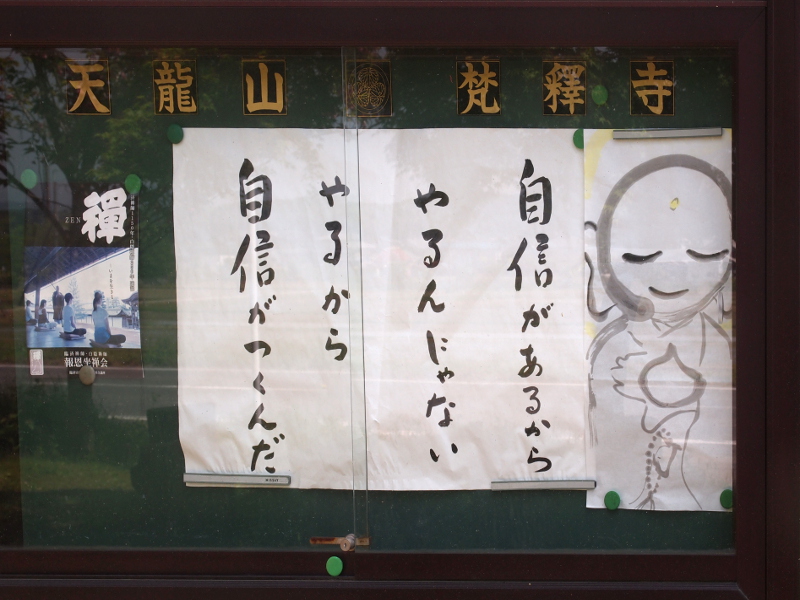 天龍山 梵釋寺
自信があるから
やるんじゃない
やるから
自信がつくんだ
禪
ZEN
報恩坐禅会